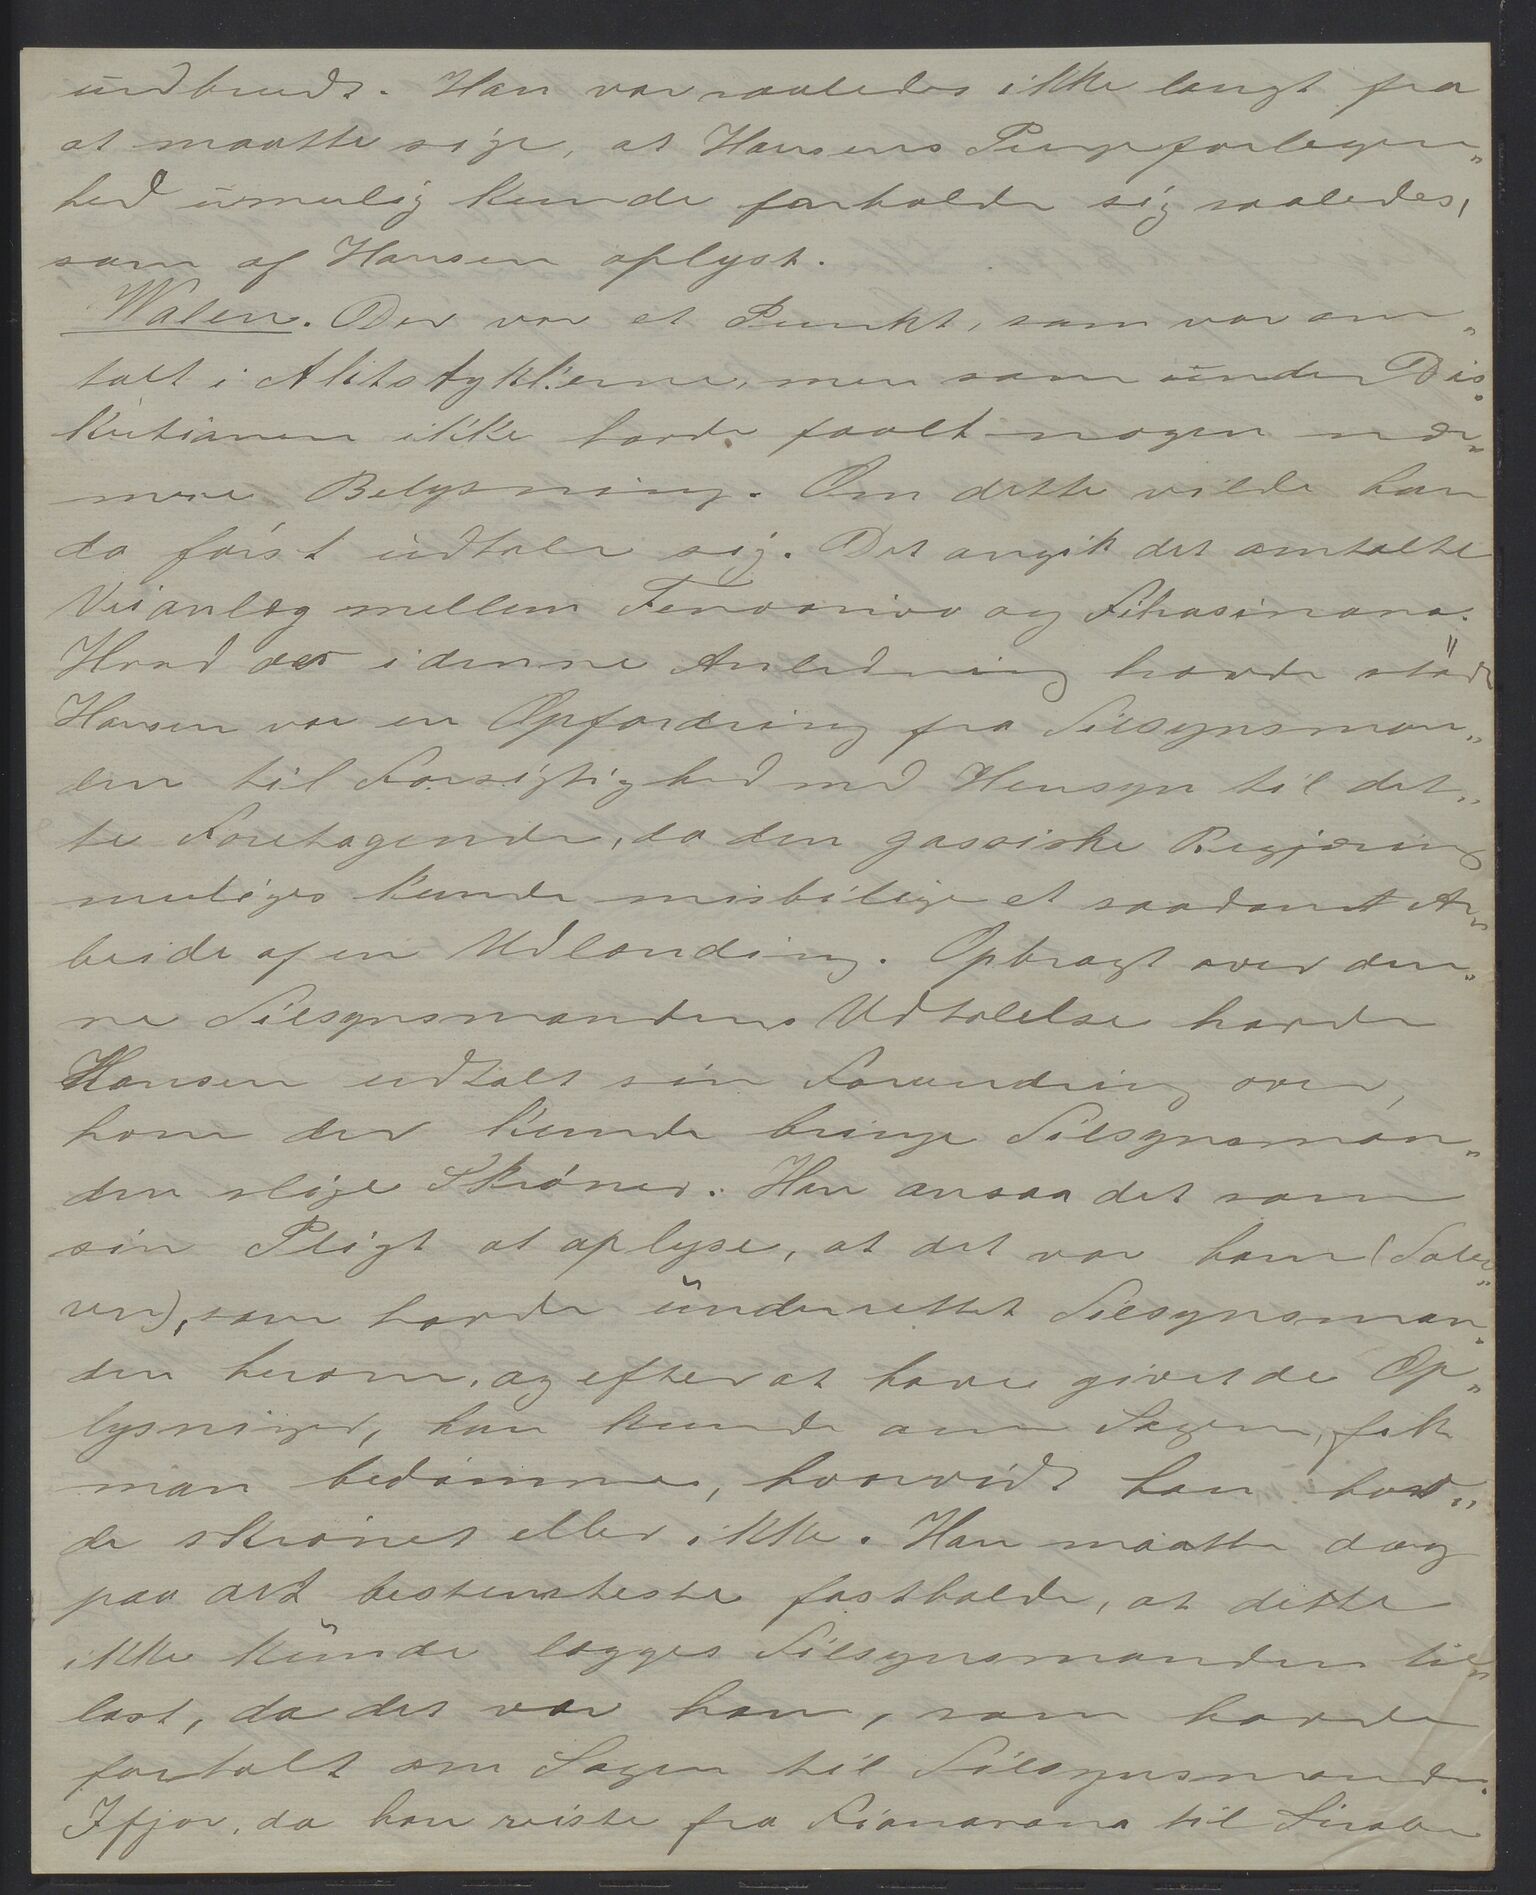 udbrudt. Han var saaledes ikke langt fra
at maatte sige, at Hansens Pengeforlegen„
hed umulig kunde forholde sig saaledes,
som af Hansen oplyst.
Walen. Der var et Punkt, som var om„
talt i Aktstykkerne, men som under Dis„
kutionen ikke havde faaet nogen nær„
mere Belysning. Om dette vilde han
da først udtale sig. Det angik det omtalte
Veianlæg mellem Fenoarivo og Fihasinana.
Hvad der i denne Anledning havde stødt
Hansen var en Opfordring fra Tilsynsman„
den til Forsigtighed med Hensyn til det„
te Foretagende, da den gassiske Regjering
muliges kunde misbilige et saadant Ar„
beide af en Udlænding. Opbragt over den„
ne Tilsynsmandens Udtalelse havde
Hansen udtalt sin Forundring over,
hvem der kunde bringe Tilsynsman„
den slige Skrøner. Han ansaa det som
sin Pligt at oplyse, at det var ham (Tale„
ren), som havde underrettet Tilsynsman„
den herom, og efterat have givet de Op„
lysninger, han kunde om Sagen, fik
man bedømme, hvorvidt han hav„
de skrønet eller ikke. Han maatte dog
paa det bestemteste fastholde, at dette
ikke kunde lægges Tilsynsmanden til„
last, da det var ham, som havde
fortalt om Sagen til Tilsynsmanden.
Ifjor, da han reiste fra Fianarana til Sirabe